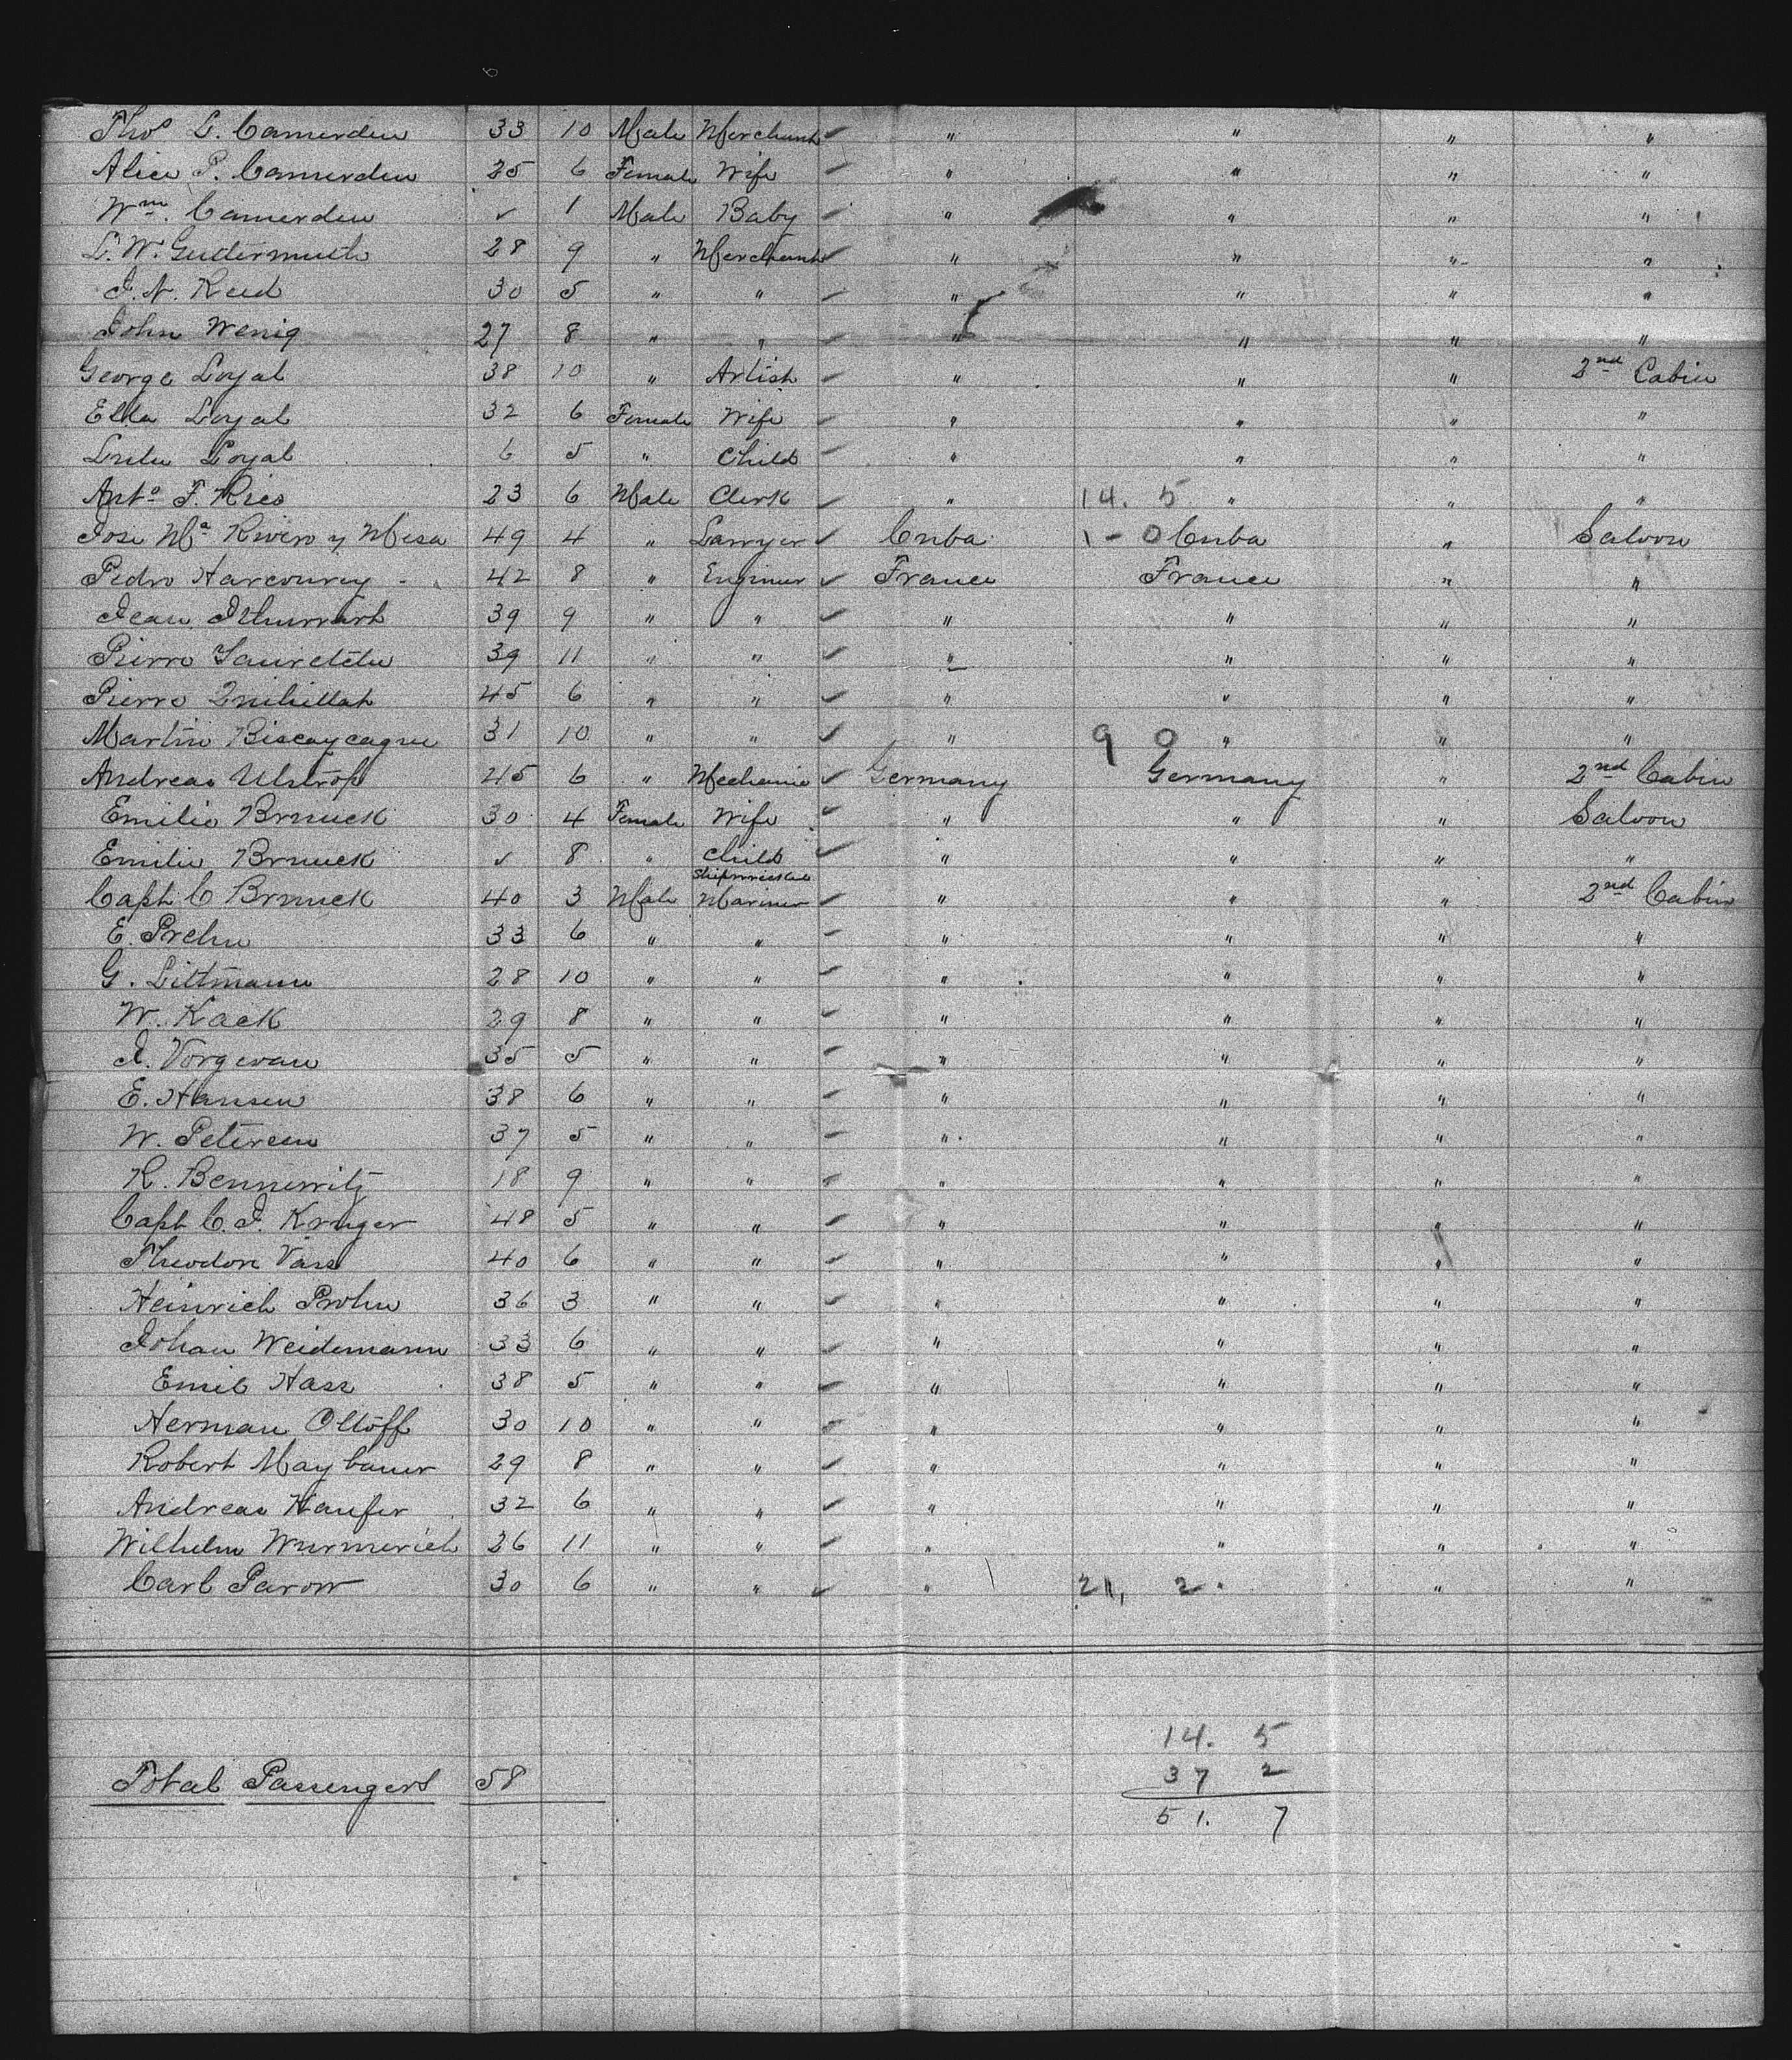 Thos L. Camerden 33 10 Male Merchant ✓ " " " "
Alice P. Camerden 25 6 Female Wife ✓ " " " "
Wm. Camerden ✓ 1 Male Baby ✓ " " " "
L. W. Guttermuth 28 9 " Merchant ✓ " " " "
J. N. Reed 30 5 " " ✓ " " " "
John Wenig 27 8 " " ✓ " " " "
George Loyal 38 10 " Artist ✓ " " " 2nd Cabin
Ella Loyal 32 6 Female Wife ✓ " " " "
Lulu Loyal 6 5 " Child ✓ " " " "
Anto F. Rico 23 6 Male Clerk ✓ " 14. 5 " " "
Jose Ma Rivero y Mesa 49 4 " Lawyer ✓ Cuba 1 - 0 Cuba " Saloon
Pedro Harcourey 42 8 " Engineer ✓ France France " "
Jean Ithurrart 39 9 " " ✓ " " " "
Pierro 39 11 " " ✓ " " " "
Pierro 45 6 " " ✓ " " " "
Martin Biscaycague 31 10 " " ✓ " 9 0 " " "
Andreas Ulstrop 45 6 " Mechanic ✓ Germany Germany " 2nd Cabin
Emilie Brnuck 30 4 Female Wife ✓ " " " Saloon
Emilie Brnuck ✓ 8 " Child ✓ " " " "
Shipwrecked
Capt C Brnuck 40 3 Male Mariner ✓ " " " 2nd Cabin
E. Prehn 33 6 " " ✓ " " " "
G. Littmann 28 10 " " ✓ " " " "
W. Kack 29 8 " " ✓ " " " "
J. Vorgwan 35 5 " " ✓ " " " "
E. Hansen 38 6 " " ✓ " " " "
W. Petersen 37 5 " " ✓ " " " "
R. Bennewitz 18 9 " " ✓ " " " "
Capt C. J. Kruger 48 5 " " ✓ " " " "
Theodore Vass 40 6 " " ✓ " " " "
Heinrich Prohn 36 3 " " ✓ " " " "
Johan Weidemann 33 6 " " ✓ " " " "
Emil Hass 38 5 " " ✓ " " " "
Herman Oltoff 30 10 " " ✓ " " " "
Robert Maybauer 29 8 " " ✓ " " " "
Andreas Haufer 32 6 " " ✓ " " " "
Wilhelm Wurmerich 26 11 " " ✓ " " " "
Carl Parow 30 6 " " ✓ " 21, 2 " " "
14. 5
37 2
Total Passengers 58
51. 7